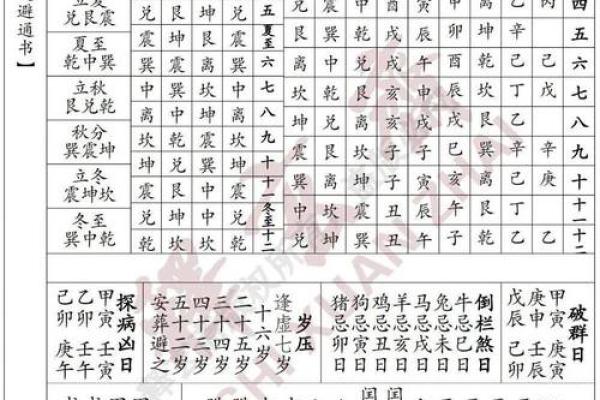 避通书】
兑艮震
夏至
乾中巽
立秋
艮兑乾
秋分
巽震坤
立冬
震坤坎
冬至
巽中乾
兑 坤 震 兑 五
震 坤 艮 坤 夏至
巽 震 离 巽 六
中 乾 坎 乾 七
离 中 坤 离 八
坎 乾 震 坎 九
坤 兑 离 坤 十
震 艮 中 震 十一
兑 坤 坎 兑 冬至
乾 坎 乾 乾 十二
四
艮 巽 震 戌 戌 卯 卯 辛 五
巽 乾 中 亥 戌 午 酉 乾 己 己 六
乾 艮 离 戌 亥 申 辰 坎 丁 戊 七
中 坤 坎 亥 辰 戌 戌 艮 乙 八
坎 震 坤 子 子 巳 巽 辛 辛 九
巽 离 坤 子 寅 亥 离 己 庚 十
中 坎 震 丑 辰 午 艮 丁 十一
兑 坤 坎 丑 午 子 乾 乙 乙 十二
破群日
甲寅
庚申
戊辰
壬寅
庚辰
己卯
倒栏煞
牛忌巳日
兔忌未日
马忌戌日
羊忌亥日
鸡忌丑日
狗忌寅日
猪忌卯日
岁压
逢虚七岁
十六岁
二十五岁
三十四岁
四十三岁
五十二岁
安葬避之
探病凶日
甲寅 壬寅
乙卯 壬午
己卯 庚午